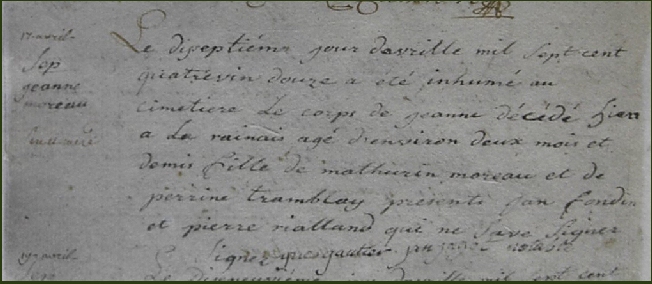 17 avril
Sep
jeanne
moreau
Le diseptième jour davrille mil sept cent
quatrevin douze a été inhumé au
cimetiere Le corps de jeanne décédé hier
a La rainais agé denviron deux mois et
demis fille de mathurin moreau et de
perrine tramblay présents jan fondin
et pierre rialland qui ne save signer
Signez
19 avril
Le dixneuvième jour davrille mil sept cent